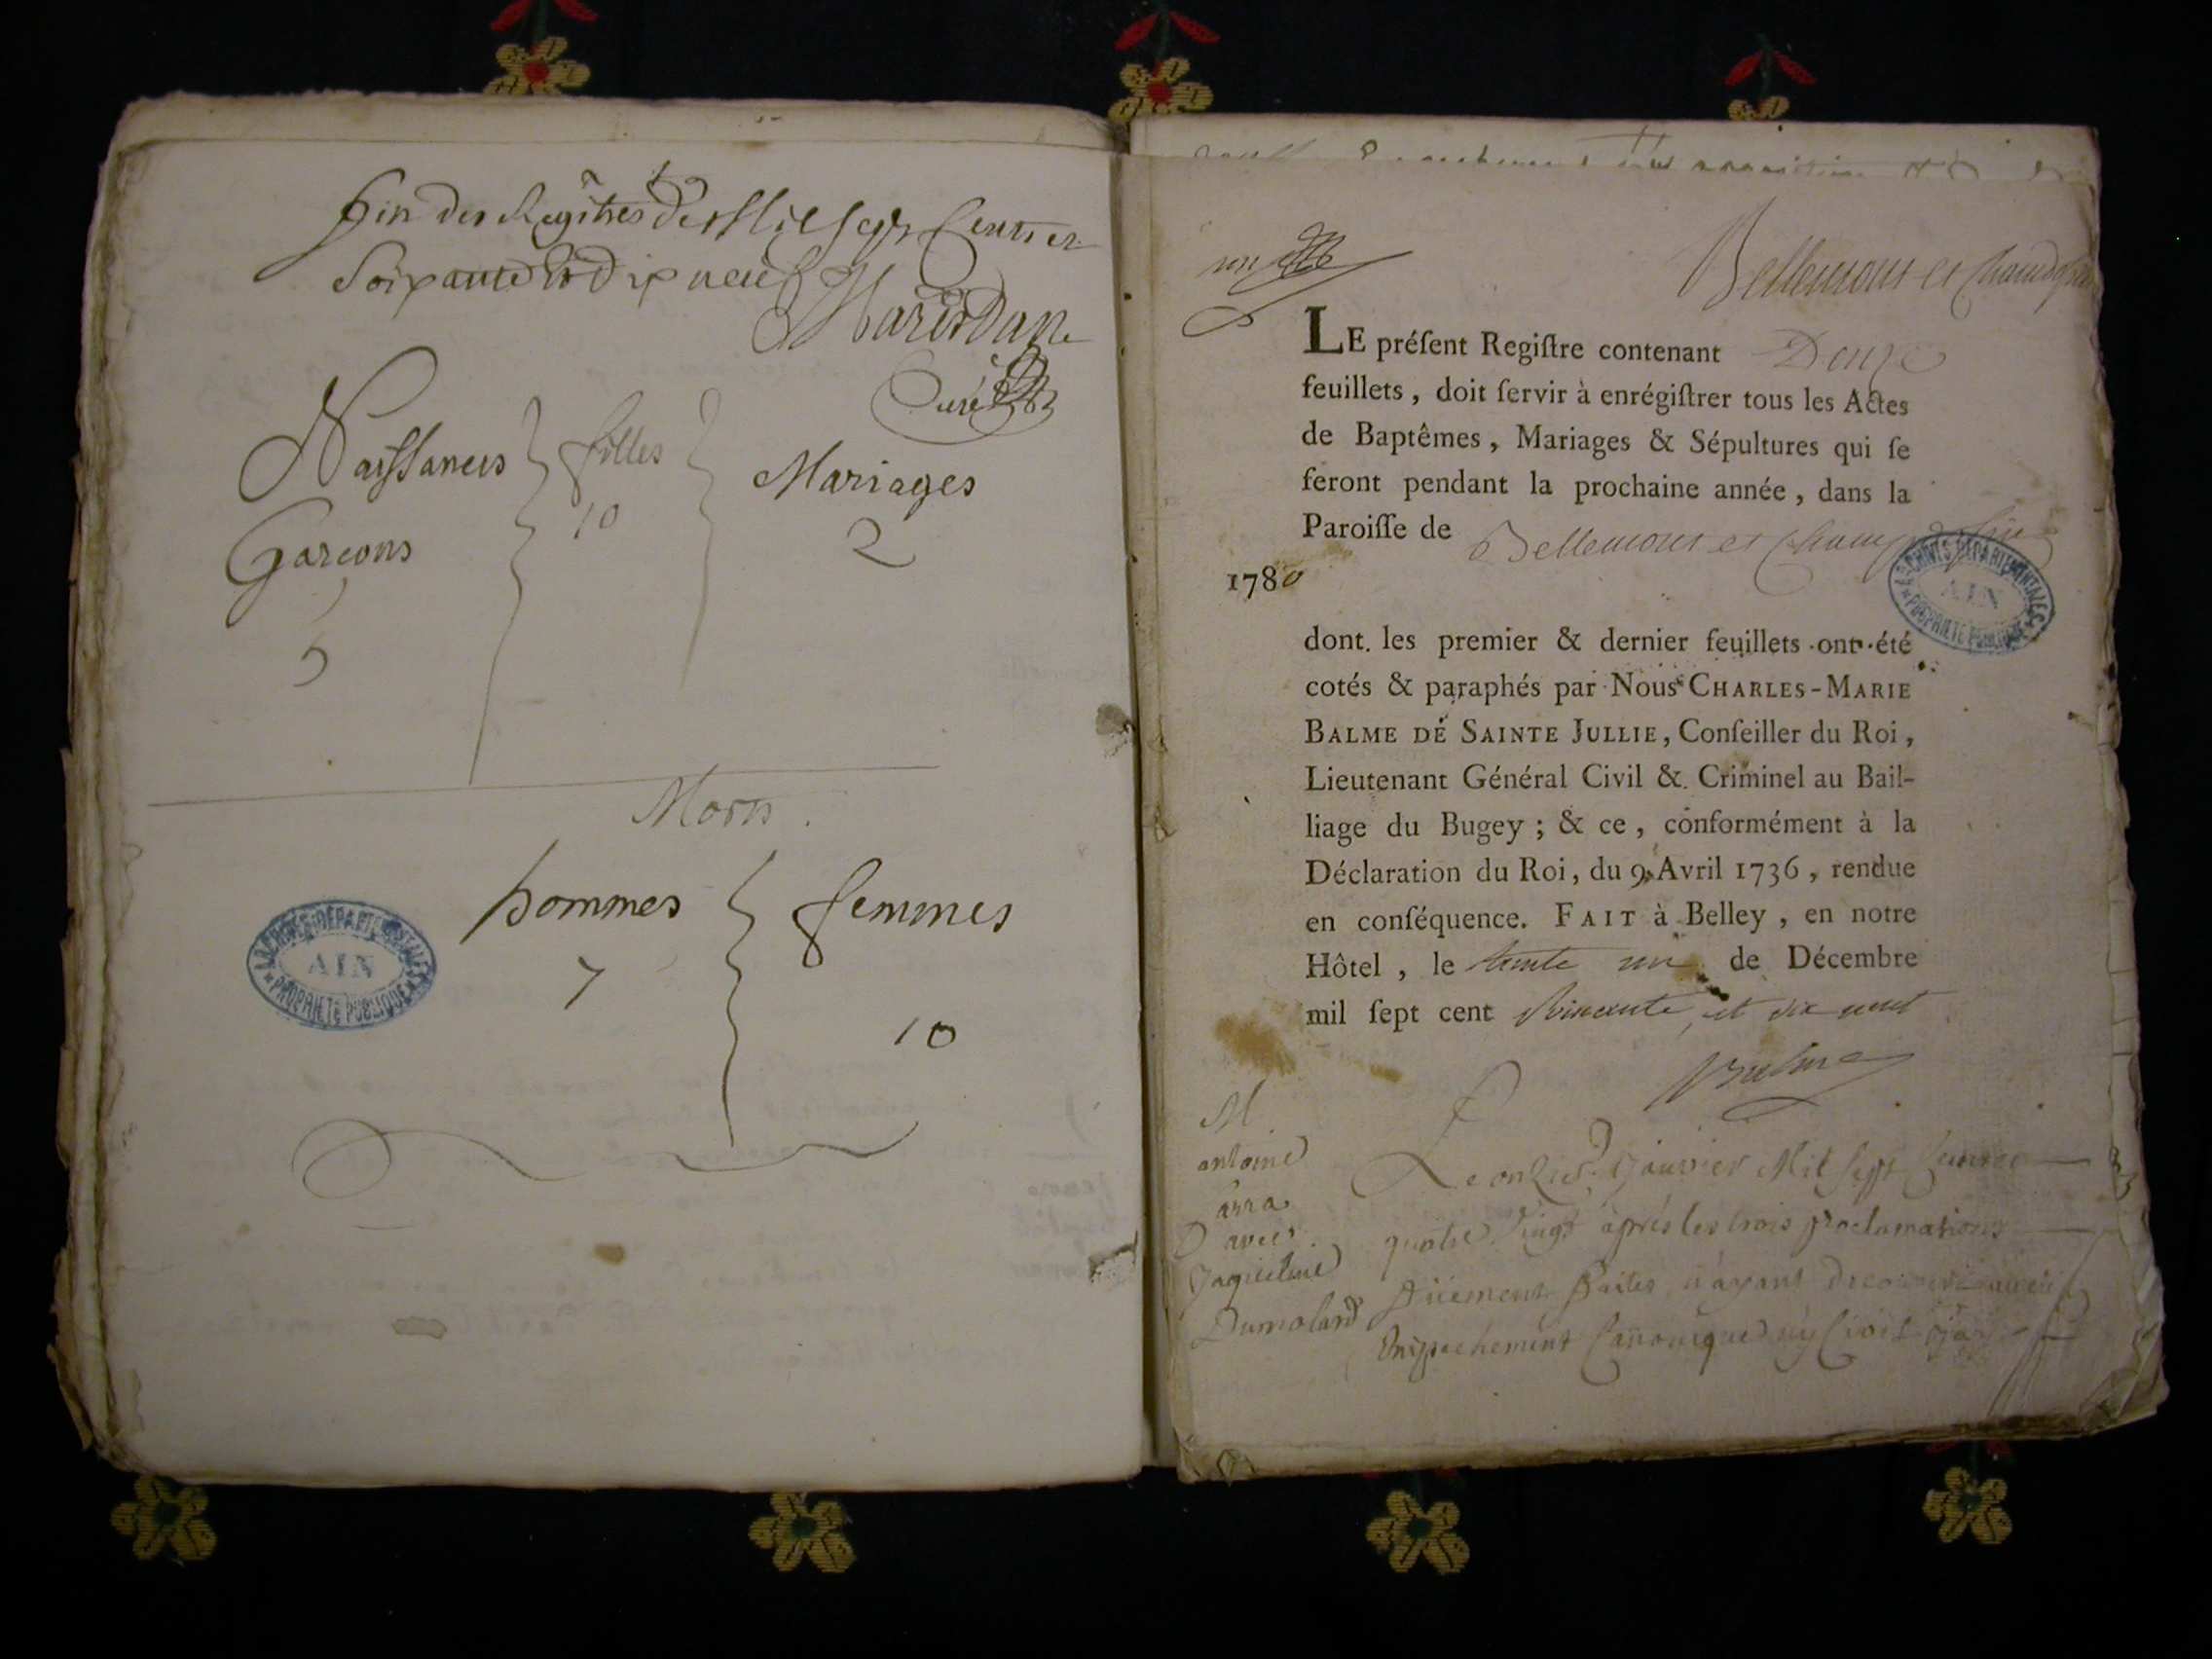 fin des Regîtres de Mil Sept Cents et
Soixante Et dix neuf
Curé
Naissances
filles
Mariages
Garçons
10
2
5
Morts.
hommes
femmes
7
10
ARCHIVES DÉPARTEMENTALES
AIN
PROPRIÉTÉ PUBLIQUE
un
Bellemont et
LE préſent Regiſtre contenant Douze
feuillets, doit ſervir à enrégiſtrer tous les Actes
de Baptêmes, Mariages & Sépultures qui ſe
feront pendant la prochaine année, dans la
Paroiſſe de Bellemont et
1780
ARCHIVES DÉPARTEMENTALES
AIN
PROPRIÉTÉ PUBLIQUE
dont les premier & dernier feuillets ont été
cotés & paraphés par Nous CHARLES-MARIE
BALME DE SAINTE JULLIE, Conſeiller du Roi,
Lieutenant Général Civil & Criminel au Bail-
liage du Bugey ; & ce, conformément à la
Déclaration du Roi, du 9 Avril 1736, rendue
en conſéquence. FAIT à Belley, en notre
Hôtel, le trente un de Décembre
mil ſept cent Soixante et dix neuf
Balme
M
antoine
avec
Jaqueline
Dumolard
Le onze Janvier Mil Sept Cents
quatre vingt après les trois proclamations
faites, n'ayant
Empechement Canonique ny Civil